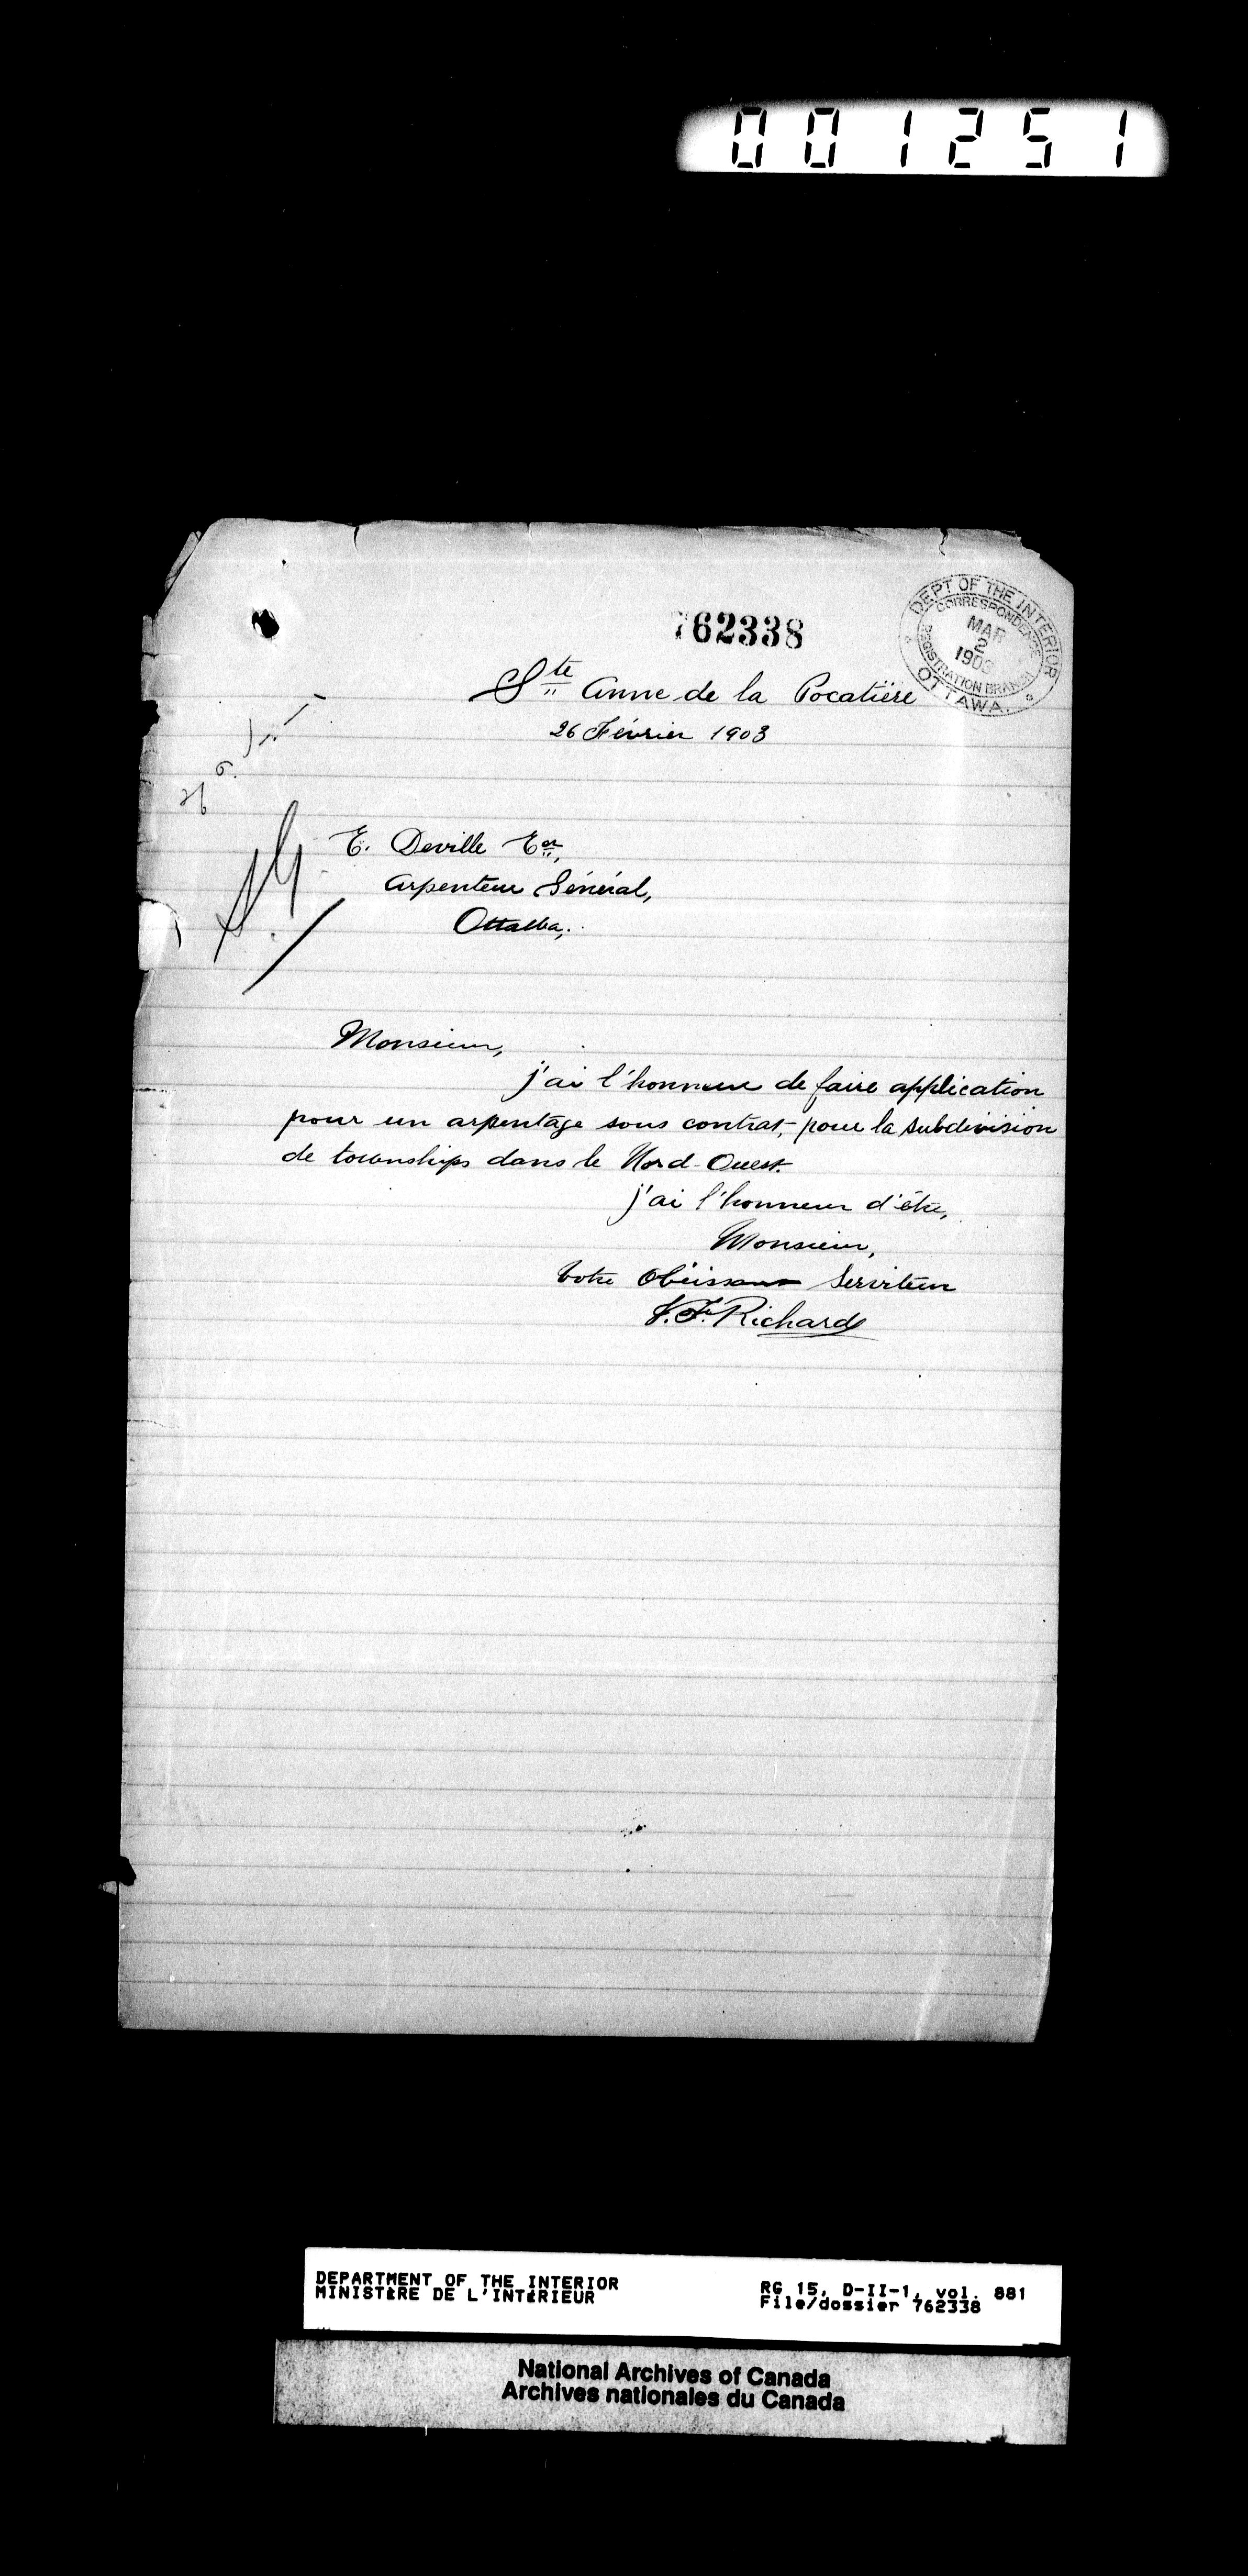 001251
762338
DEPT OF THE INTERIOR
CORRESPONDENCE
MAR
2
1903
REGISTRATION BRANCH
OTTAWA.
Ste Anne de la Pocatière
26 Février 1903
E. Deville Ecr,
Arpenteur Général,
Ottawa,
Monsieur,
j'ai l'honneur de faire application
pour un arpentage sous contrat, pour la subdivision
de townships dans le Nord-Ouest.
j'ai l'honneur d'être,
Monsieur,
Votre Obéissant Serviteur
J. F. Richard
DEPARTMENT OF THE INTERIOR
MINISTÈRE DE L'INTÉRIEUR
RG 15, D-II-1, vol. 881
File/dossier 762338
National Archives of Canada
Archives nationales du Canada